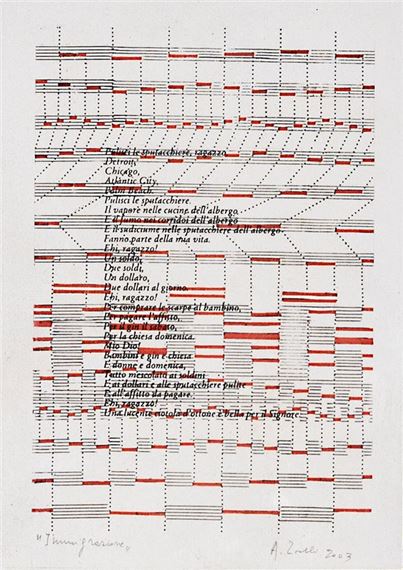 Pulisci le sputacchiere, ragazzo.
Detroit,
Chicago,
Atlantic City,
Palm Beach.
Pulisci le sputacchiere.
Il vapore nelle cucine dell'albergo
E il fumo nei corridoi dell'albergo
E il sudiciume nelle sputacchiere dell'albergo
Fanno parte della mia vita.
Ehi, ragazzo!
Un soldo,
Due soldi,
Un dollaro,
Due dollari al giorno.
Ehi, ragazzo!
Per comprare le scarpe al bambino,
Per pagare l'affitto,
Per il gin il sabato,
Per la chiesa domenica.
Mio Dio!
Bambini e gin e chiesa
E donne e domenica,
Tutto mescolato ai soldini
E ai dollari e alle sputacchiere pulite
E all'affitto da pagare.
Ehi, ragazzo!
Una lucente ciotola d'ottone è bella per il Signore.
"Immigrazione" A. 2003